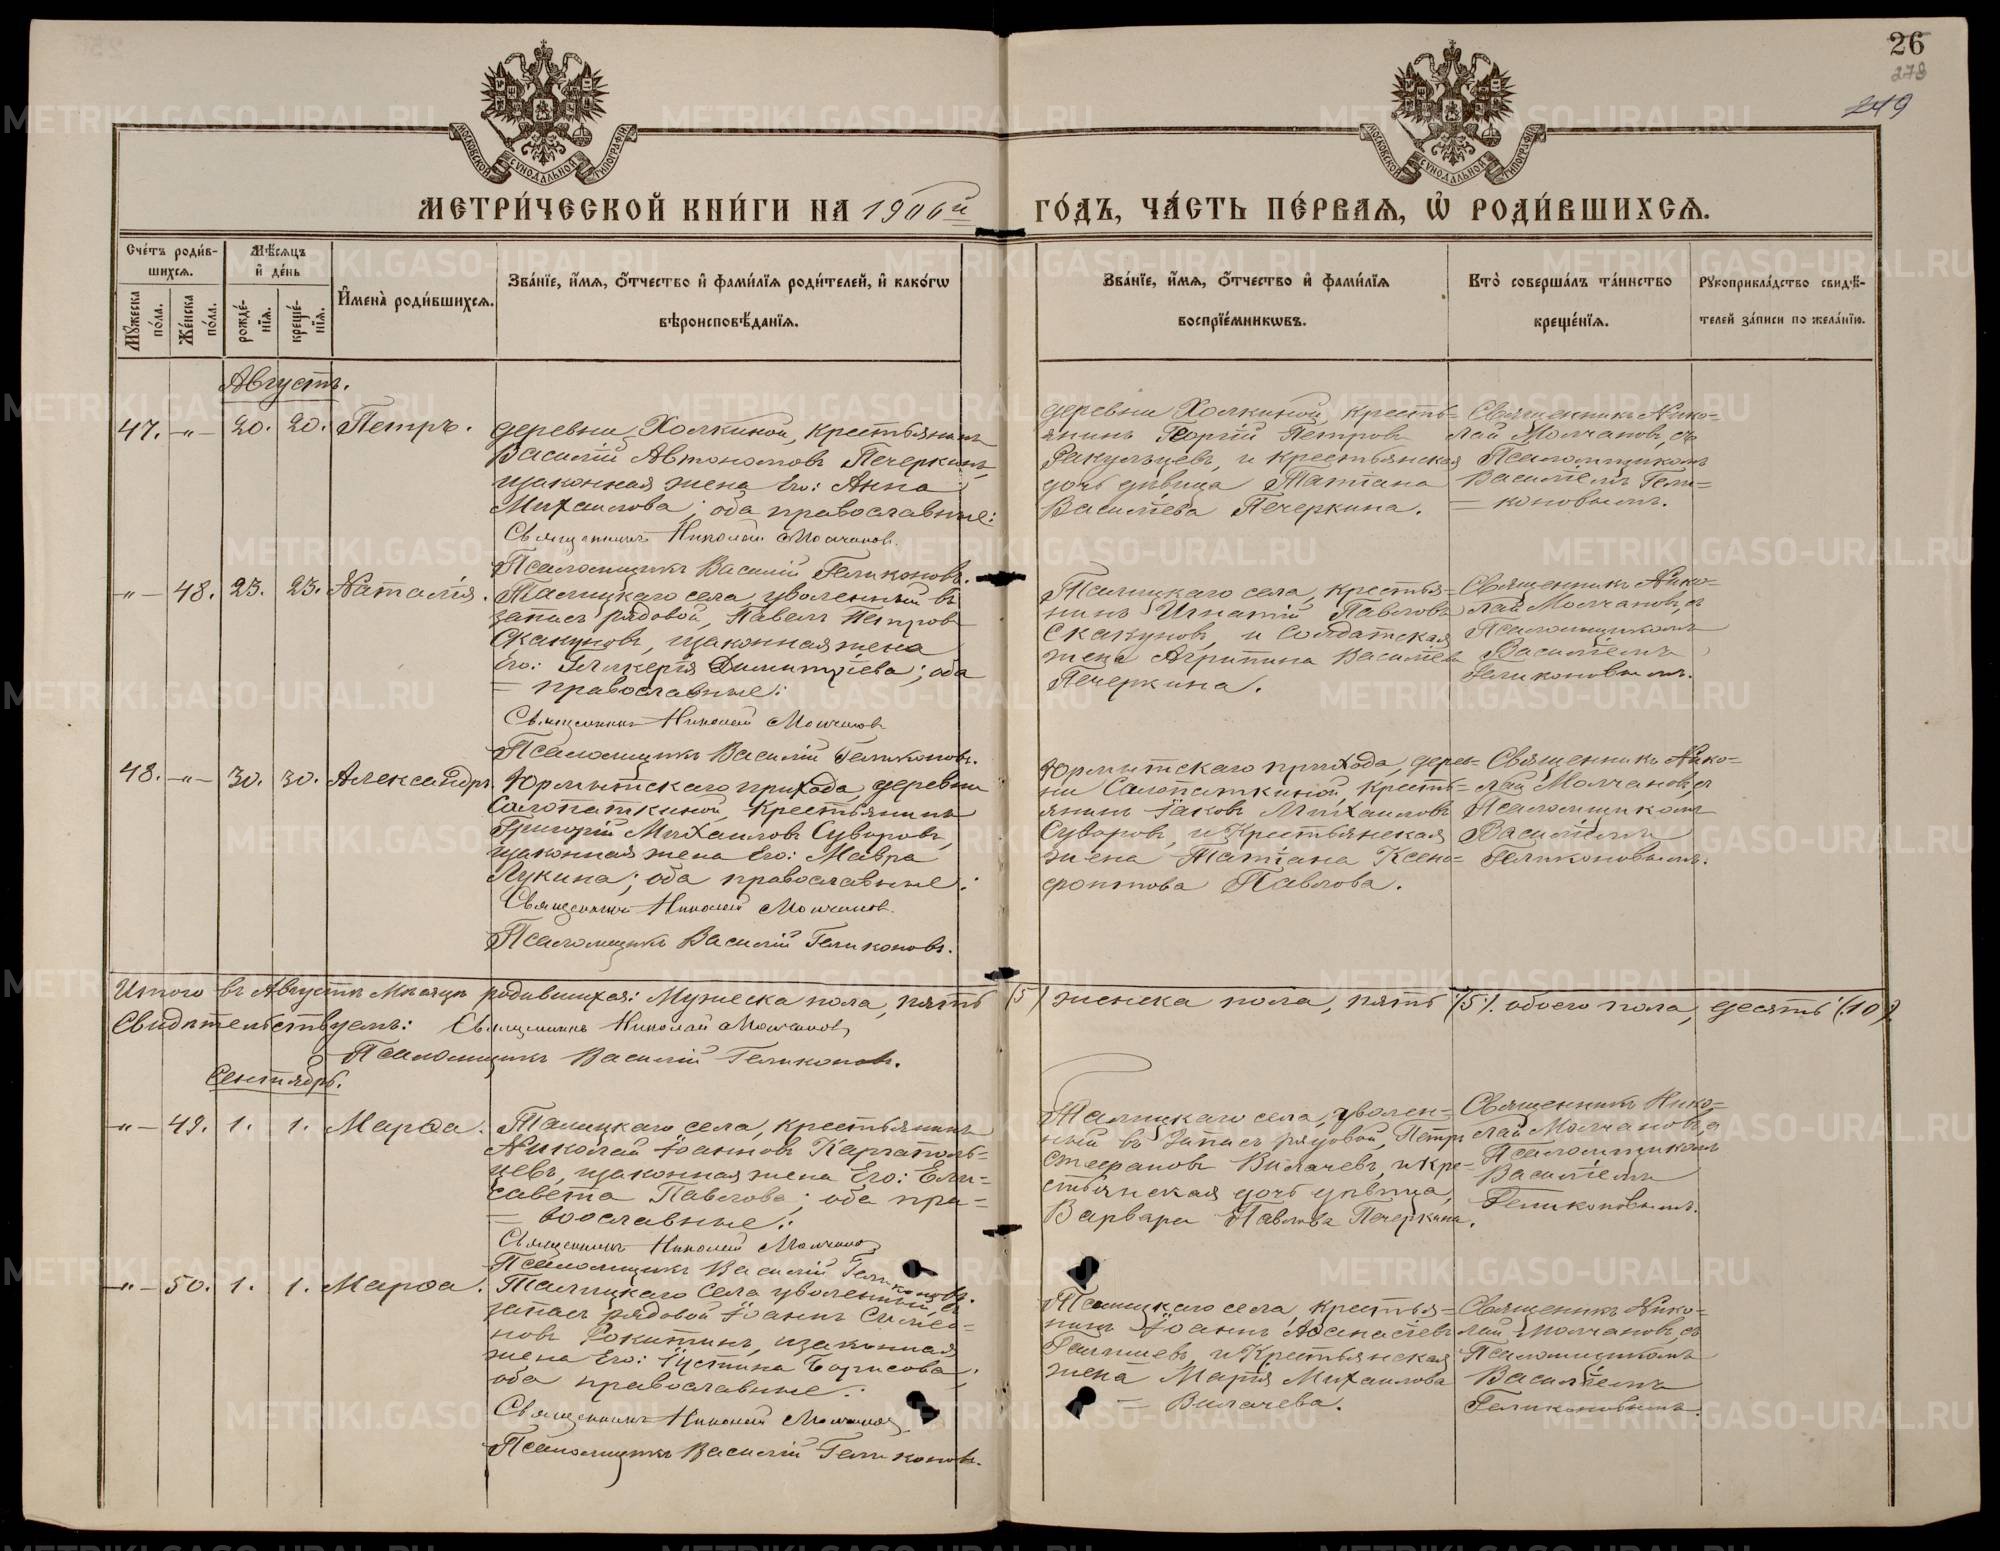 26
279
219
МОСКОВСКОЙ СѴНОДАЛЬНОЙ ТИПОГРАФІИ
МОСКОВСКОЙ СѴНОДАЛЬНОЙ ТИПОГРАФІИ
МЕТРИ́ЧЕСКОЙ КНИ́ГИ НА 1906й ГО́ДЪ, ЧА́СТЬ ПЕ́РВАѦ, Ѡ҆ РОДИ́ВШИХСѦ.
Сче́тъ роди́в-
шихсѧ.
Мꙋ́жеска по́ла.
Же́нска по́ла.
Мѣ́сѧцъ
и҆ де́нь
рожде́-нїѧ.
креще́-нїѧ.
И҆мена̀ роди́вшихсѧ.
Зва́нїе, и҆́мѧ, ѻ҆́тчество и҆ фамн́лїѧ роди́телей, и҆ како́гѡ
вѣроисповѣ́данїѧ.
Зва́нїе, и҆́мѧ, ѻ҆́тчество и҆ фами́лїѧ
воспрїе́мникѡвъ.
Кто̀ соверша́лъ та́инство
креще́нїѧ.
Рꙋкоприкла́дство свидѣ́-
телей за́писи по жела́нїю.
Августъ.
47. -„- 20. 20. Петръ.
деревни Холкиной, крестьянинъ
Василій Автономовъ Печеркинъ
изаконная жена Его: Анна
Михаилова; оба православные:
Священникъ Николай Молчановъ.
Псаломщикъ Василій Геликоновъ.
деревни Холкиной, кресть=
янинъ Георгій Петровъ
Ракульцевъ, и крестьянская
дочь дѣвица Татіана
Василіева Печеркина.
Священникъ Нико=
лай Молчановъ, съ
Псаломщикомъ
Василіемъ Гели=
= коновымъ.
-„- 48. 23. 23. Наталія.
Талицкаго села, уволенный въ
запасъ рядовой, Павелъ Петровъ
Скакуновъ, изаконная жена
Его: Гликерія Димитріева; оба
= православные:
Священникъ Николай Молчановъ
Псаломщикъ Василій Геликоновъ.
Талицкаго села, крестья=
нинъ Игнатій Павловъ
Скакуновъ, и солдатская
жена Агрипина Василіева
Печеркина.
Священникъ Нико=
лай Молчановъ, съ
Псаломщикомъ
Василіемъ
Геликоновымъ.
48. -„- 30. 30. Александръ.
Юрмытскаго прихода, деревни
Солопаткиной, крестьянинъ
Григорій Михаиловъ Суворовъ,
изаконная жена Его: Мавра
Лукина; оба православные:
Священникъ Николай Молчановъ.
Псаломщикъ Василій Геликоновъ.
Юрмытскаго прихода, дерев=
ни Салопаткиной, кресть=
янинъ Іаковъ Михаиловъ
Суворовъ, и Крестьянская
жена Татіана Ксено=
фонтова Павлова.
Священникъ Нико=
лай Молчановъ, съ
Псаломщикомъ
Василіемъ
Геликоновымъ.
Итого въ Августѣ Мѣсяцѣ родившихся: Мужеска пола, пять (5) женска пола, пять (5). обоего пола, десять (10).
Свидѣтельствуемъ: Священникъ Николай Молчановъ
Псаломщикъ Василій Геликоновъ.
Сентябрь.
-„- 49. 1. 1. Марѳа.
Талицкаго села, крестьянинъ
Николай Іоанновъ Каргаполь=
цевъ, изаконная жена Его: Ели=
савета Павлова; оба пра=
= вославные:
Священникъ Николай Молчановъ
Псаломщикъ Василій Геликоновъ.
Талицкаго села, уволен=
ный въ запасъ рядовой, Петръ
Стефановъ Вилачевъ, и кре=
стьянская дочь дѣвица,
Варвара Павлова Печеркина.
Священникъ Нико=
лай Молчановъ, съ
Псаломщикомъ
Василіемъ
Геликоновымъ.
-„- 50. 1. 1. Марѳа.
Талицкаго Села уволенный въ
запасъ рядовой Іоаннъ Симео=
новъ Рокитинъ, изаконная
жена Его: Іустина Борисова,
оба православные:
Священникъ Николай Молчановъ
Псаломщикъ Василій Геликоновъ.
Талицкаго села, крестья=
нинъ Іоаннъ Аѳанасіевъ
Галишевъ, и Крестьянская
жена Марія Михаилова
= Вилачева.
Священникъ Нико=
лай Молчановъ, съ
Псаломщикомъ
Василіемъ
Геликоновымъ.
METRIKI.GASO-URAL.RU